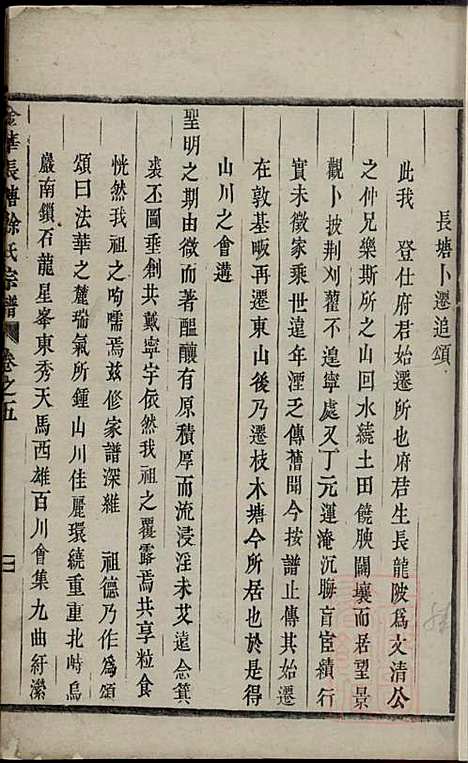 長塘卜遷追頌
此我 登仕府君始遷所也府君生長龍陂爲文清公
之仲兄樂斯所之山回水繞土田饒腴闢壤而居望景
觀卜披荆刈藋不遑寧處又丁元運淹沉晦盲宦績行
實未徵家乘世遠年湮乏傳舊聞今按譜止傳其始遷
在敦基畈再遷東山後乃遷枝木塘今所居也於是得
山川之會遘
聖明之期由微而著醞釀有原積厚而流浸淫未艾遠念箕
裘丕圖垂創共戴寧宇依然我祖之覆露焉共享粒食
恍然我祖之呴嚅焉兹修家譜深維 祖德乃作爲頌
頌曰法華之麓瑞氣所鍾山川佳麗環繞重重北峙烏
巖南鎖石龍星峯東秀天馬西雄百川會集九曲紆瀠
金華長塘徐氏宗譜 卷之五